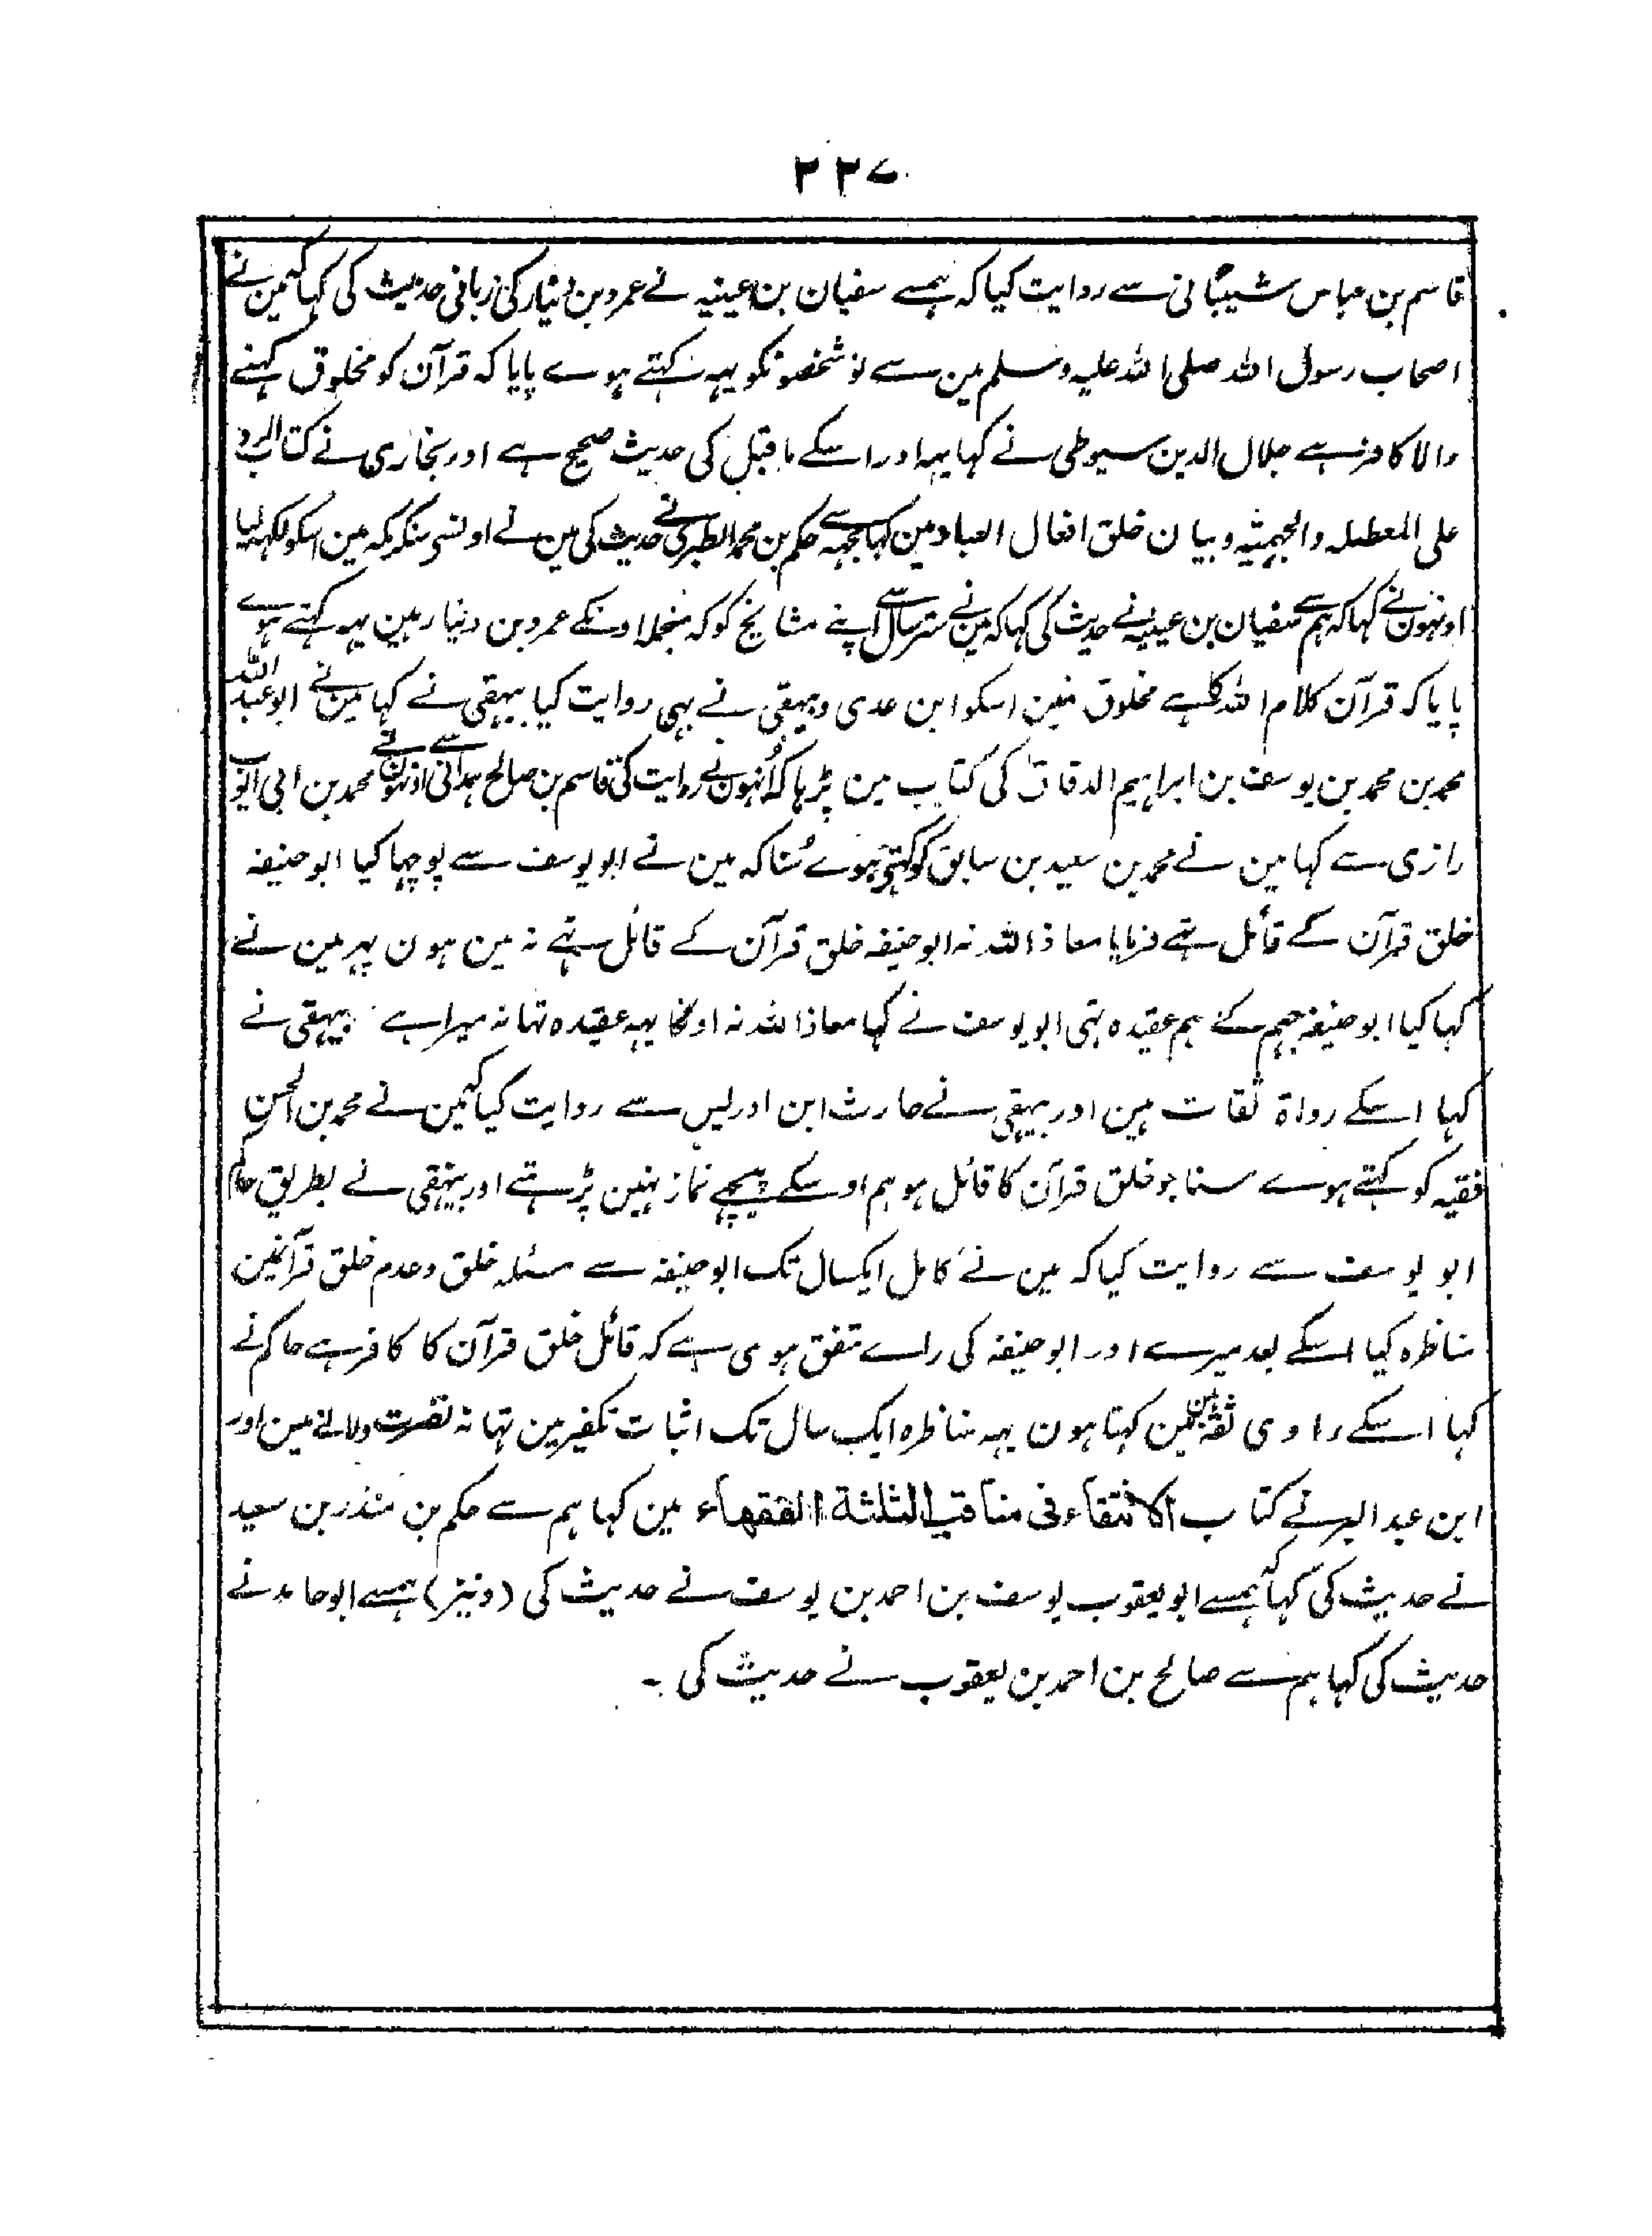 ۲۲۷
قاسم بن عباس شیبانی سے روایت کیا کہ ہمسے سفیان بن عیینہ نے عمرو بن دینار کی زبانی حدیث کی کہا کہ مین نے
اصحاب رسول اللہ صلی اللہ علیہ وسلم مین سے نو شخصونکو یہہ کہتے ہوے پایا کہ قرآن کو مخلوق کہنے
والا کافر ہے جلال الدین سیوطی نے کہا یہہ اور اسکے ماقبل کی حدیث صحیح ہے اور بخاری نے کتاب الرد
علی المعطلہ والجہمیۃ وبیان خلق افعال العباد مین کہا مجہہ سے حکم بن محمد الطبری نے حدیث کی مین نے اونسی سنکر مکہ مین اسکو لکہہ لیا
اونہون نے کہا کہ ہم سے سفیان بن عیینہ نے حدیث کی کہا کہ مین نے ستر سال سے اپنے مشایخ کو کہ منجملہ اونکے عمرو بن دینار ہین یہہ کہتے ہوے
پایا کہ قرآن کلام اللہ کا ہے مخلوق نہین اسکو ابن عدی و بیہقی نے بہی روایت کیا بیہقی نے کہا مین نے ابو عبد اللہ
محمد بن محمد بن یوسف بن ابراہیم الدقاق کی کتاب مین پڑہا کہ اُنہون نے روایت کی قاسم بن صالح ہمدانی سے اونہون نے محمد بن ابی ایوب
رازی سے کہا مین نے محمد بن سعید بن سابق کو کہتے ہوے سُنا کہ مین نے ابو یوسف سے پوچہا کیا ابو حنیفہ
خلق قرآن کے قائل تہے فرمایا معاذ اللہ نہ ابو حنیفہ خلق قرآن کے قائل تہے نہ مین ہون پہر مین نے
کہا کیا ابو حنیفہ جہم کے ہم عقیدہ تہی ابو یوسف نے کہا معاذ اللہ نہ اونکا یہہ عقیدہ تہا نہ میرا ہے بیہقی نے
کہا اسکے رواۃ ثقات ہین اور بیہقی نے حارث ابن ادریس سے روایت کیا کہ مین نے محمد بن الحسن
فقیہ کو کہتے ہوے سنا جو خلق قرآن کا قائل ہو ہم اوسکے پیچہے نماز نہین پڑہتے اور بیہقی نے بطریق حاکم
ابو یوسف سے روایت کیا کہ مین نے کامل ایکسال تک ابو حنیفہ سے مسئلہ خلق وعدم خلق قرآنمین
مناظرہ کیا اسکے بعد میرے اور ابو حنیفہ کی راے متفق ہوی ہے کہ قائل خلق قرآن کا کافر ہے حاکم نے
کہا اسکے راوی ثقہ ہین مین کہتا ہون یہہ مناظرہ ایک سال تک اثبات تکفیر مین تہا نہ نفرت دلانے مین اور
ابن عبد البر نے کتاب الانتقاء فی مناقب الثلثة الفقهاء مین کہا ہم سے حکم بن منذر بن سعید
نے حدیث کی کہا ہمسے ابو یعقوب یوسف بن احمد بن یوسف نے حدیث کی (ونیز) ہمسے ابو حامد نے
حدیث کی کہا ہم سے صالح بن احمد بن یعقوب نے حدیث کی ۔